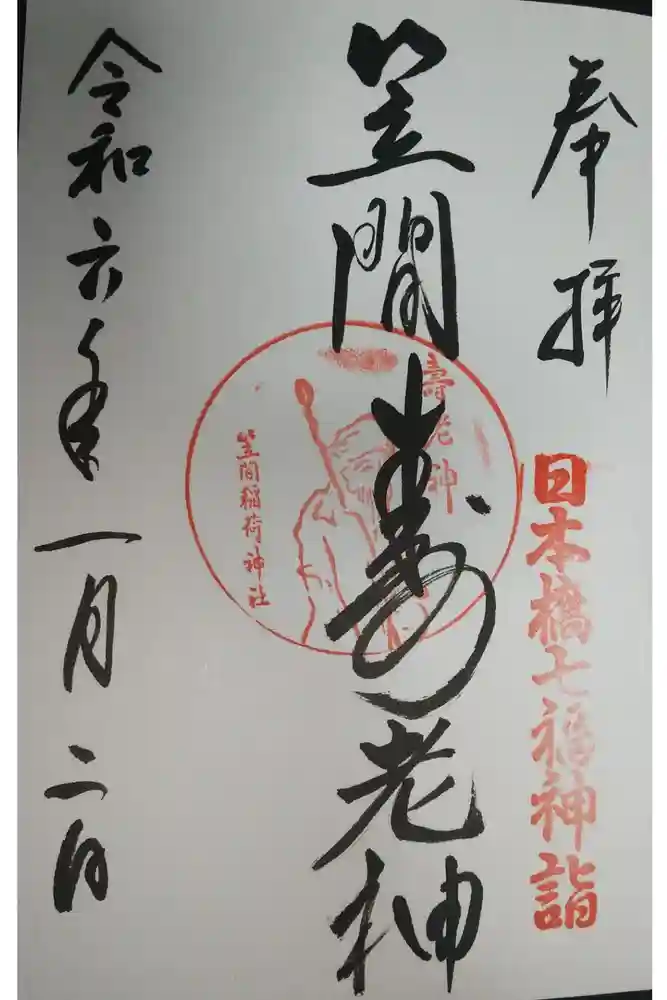 奉拝
日本橋七福神詣
笠間寿老神
壽老神
笠間稲荷神社
令和六年一月二日